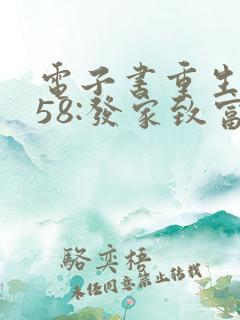 電子書重生
58:發家致富
駱奕梧
未任同意禁止轉載